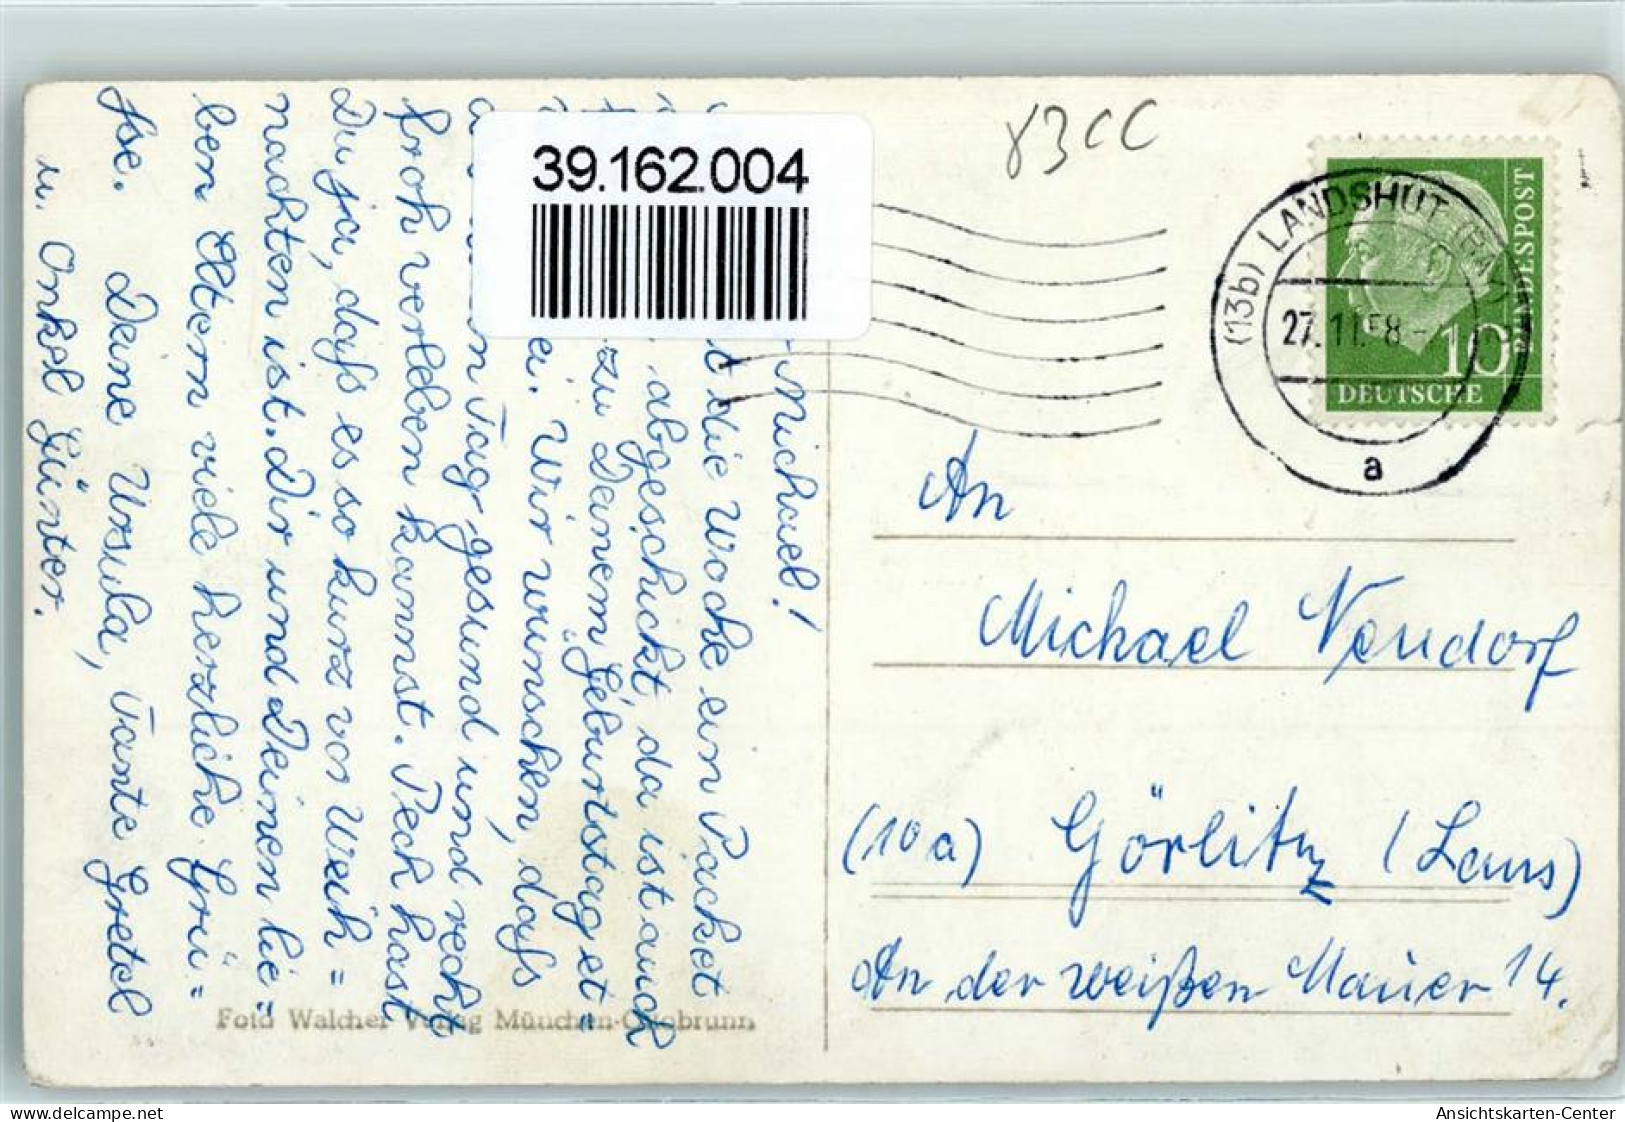 Michael!
die Woche ein Päcket
abgeschickt, da ist auch
zu Deinem Geburtstag et=
Wir wünschen, dafs
Tag gesund und recht
froh verleben kannst. Pech hast
Du ja, dafs es so kurz vor Weih=
nachten ist. Dir und Deinen lie=
ben Eltern viele herzliche Grü=
fse. Deine Ursula, Tante Gretel
u. Onkel Günter.
Foto Walcher Verlag München-Ottobrunn
39.162.004
83CC
(13b) LANDSHUT (BAY)
27.11.58
a
10
DEUTSCHE
BUNDESPOST
An
Michael Neudorf
(10a) Görlitz (Laus)
An der weißen Mauer 14.
Ansichtskarten-Center